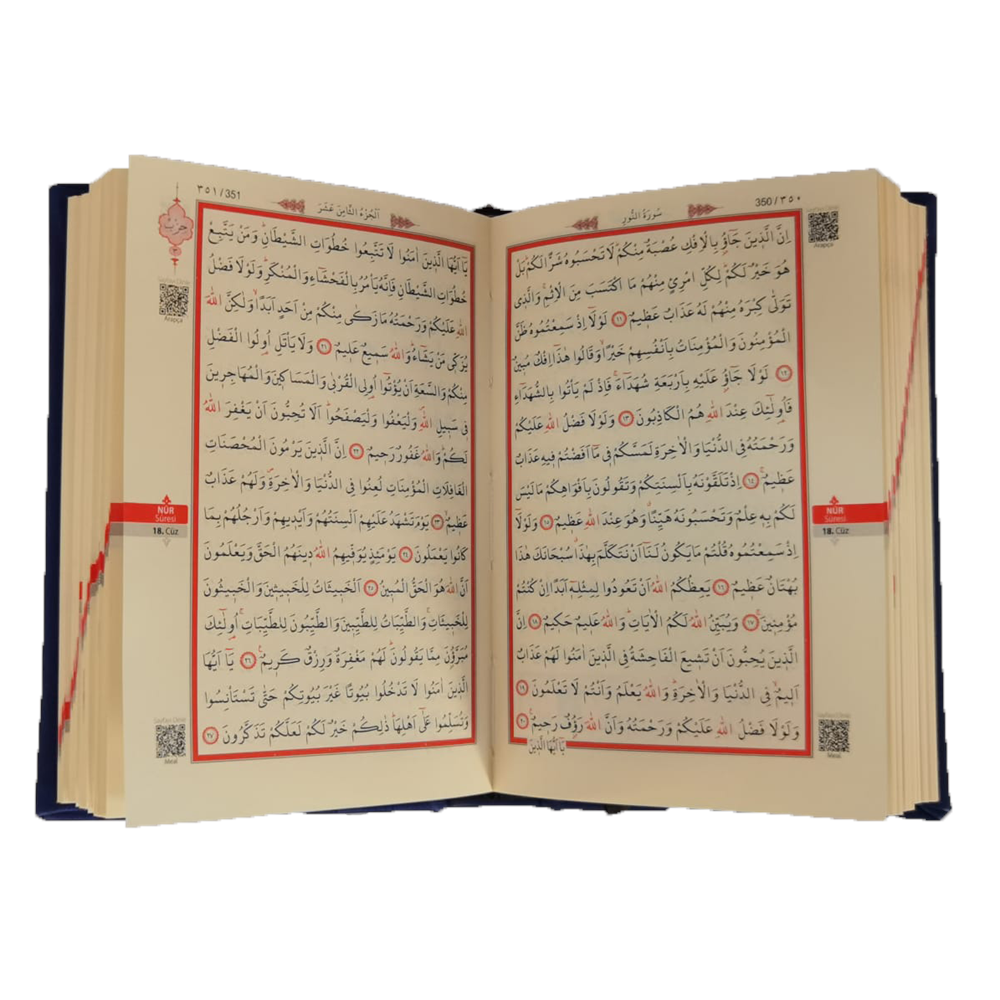 350/٣٥٠
سُورَةُ النُّورِ
Arapça
اِنَّ الَّذ۪ينَ جَٓاؤُ۫ بِالْاِفْكِ عُصْبَةٌ مِنْكُمْۜ لَا تَحْسَبُوهُ شَرًّا لَكُمْۜ بَلْ
هُوَ خَيْرٌ لَكُمْۜ لِكُلِّ امْرِئٍ مِنْهُمْ مَا اكْتَسَبَ مِنَ الْاِثْمِۚ وَالَّذ۪ي
تَوَلّٰى كِبْرَهُ مِنْهُمْ لَهُ عَذَابٌ عَظ۪يمٌ ١١ لَوْلَٓا اِذْ سَمِعْتُمُوهُ ظَنَّ
الْمُؤْمِنُونَ وَالْمُؤْمِنَاتُ بِاَنْفُسِهِمْ خَيْرًاۙ وَقَالُوا هٰذَٓا اِفْكٌ مُب۪ينٌ
١٢ لَوْلَا جَٓاؤُ۫ عَلَيْهِ بِاَرْبَعَةِ شُهَدَٓاءَۚ فَاِذْ لَمْ يَأْتُوا بِالشُّهَدَٓاءِ
فَاُو۬لٰٓئِكَ عِنْدَ اللّٰهِ هُمُ الْكَاذِبُونَ ١٣ وَلَوْلَا فَضْلُ اللّٰهِ عَلَيْكُمْ
وَرَحْمَتُهُ فِي الدُّنْيَا وَالْاٰخِرَةِ لَمَسَّكُمْ ف۪ي مَٓا اَفَضْتُمْ ف۪يهِ عَذَابٌ
عَظ۪يمٌۚ ١٤ اِذْ تَلَقَّوْنَهُ بِاَلْسِنَتِكُمْ وَتَقُولُونَ بِاَفْوَاهِكُمْ مَا لَيْسَ
لَكُمْ بِه۪ عِلْمٌ وَتَحْسَبُونَهُ هَيِّنًاۗ وَهُوَ عِنْدَ اللّٰهِ عَظ۪يمٌ ١٥ وَلَوْلَٓا
اِذْ سَمِعْتُمُوهُ قُلْتُمْ مَا يَكُونُ لَنَٓا اَنْ نَتَكَلَّمَ بِهٰذَاۗ سُبْحَانَكَ هٰذَا
بُهْتَانٌ عَظ۪يمٌ ١٦ يَعِظُكُمُ اللّٰهُ اَنْ تَعُودُوا لِمِثْلِه۪ٓ اَبَدًا اِنْ كُنْتُمْ
مُؤْمِن۪ينَۚ ١٧ وَيُبَيِّنُ اللّٰهُ لَكُمُ الْاٰيَاتِۜ وَاللّٰهُ عَل۪يمٌ حَك۪يمٌ ١٨ اِنَّ
الَّذ۪ينَ يُحِبُّونَ اَنْ تَش۪يعَ الْفَاحِشَةُ فِي الَّذ۪ينَ اٰمَنُوا لَهُمْ عَذَابٌ
اَل۪يمٌۙ فِي الدُّنْيَا وَالْاٰخِرَةِۜ وَاللّٰهُ يَعْلَمُ وَاَنْتُمْ لَا تَعْلَمُونَ ١٩
وَلَوْلَا فَضْلُ اللّٰهِ عَلَيْكُمْ وَرَحْمَتُهُ وَاَنَّ اللّٰهَ رَؤُ۫فٌ رَح۪يمٌ۟ ٢٠
يَٓا اَيُّهَا الَّذ۪ينَ
NÛR
Sûresi
18. Cüz
Meal
٣٥١/351
اَلْجُزْءُ الثَّامِنَ عَشَرَ
حِزْب
Arapça
يَٓا اَيُّهَا الَّذ۪ينَ اٰمَنُوا لَا تَتَّبِعُوا خُطُوَاتِ الشَّيْطَانِۜ وَمَنْ يَتَّبِعْ
خُطُوَاتِ الشَّيْطَانِ فَاِنَّهُ يَأْمُرُ بِالْفَحْشَٓاءِ وَالْمُنْكَرِۜ وَلَوْلَا فَضْلُ
اللّٰهِ عَلَيْكُمْ وَرَحْمَتُهُ مَا زَكٰى مِنْكُمْ مِنْ اَحَدٍ اَبَدًاۙ وَلٰكِنَّ اللّٰهَ
يُزَكّ۪ي مَنْ يَشَٓاءُۜ وَاللّٰهُ سَم۪يعٌ عَل۪يمٌ ٢١ وَلَا يَأْتَلِ اُو۬لُوا الْفَضْلِ
مِنْكُمْ وَالسَّعَةِ اَنْ يُؤْتُٓوا اُو۬لِي الْقُرْبٰى وَالْمَسَاك۪ينَ وَالْمُهَاجِر۪ينَ
ف۪ي سَب۪يلِ اللّٰهِۖ وَلْيَعْفُوا وَلْيَصْفَحُواۜ اَلَا تُحِبُّونَ اَنْ يَغْفِرَ اللّٰهُ
لَكُمْۜ وَاللّٰهُ غَفُورٌ رَح۪يمٌ ٢٢ اِنَّ الَّذ۪ينَ يَرْمُونَ الْمُحْصَنَاتِ
الْغَافِلَاتِ الْمُؤْمِنَاتِ لُعِنُوا فِي الدُّنْيَا وَالْاٰخِرَةِۖ وَلَهُمْ عَذَابٌ
عَظ۪يمٌۙ ٢٣ يَوْمَ تَشْهَدُ عَلَيْهِمْ اَلْسِنَتُهُمْ وَاَيْد۪يهِمْ وَاَرْجُلُهُمْ بِمَا
كَانُوا يَعْمَلُونَ ٢٤ يَوْمَئِذٍ يُوَفّ۪يهِمُ اللّٰهُ د۪ينَهُمُ الْحَقَّ وَيَعْلَمُونَ
اَنَّ اللّٰهَ هُوَ الْحَقُّ الْمُب۪ينُ ٢٥ اَلْخَب۪يثَاتُ لِلْخَب۪يث۪ينَ وَالْخَب۪يثُونَ
لِلْخَب۪يثَاتِۚ وَالطَّيِّبَاتُ لِلطَّيِّب۪ينَ وَالطَّيِّبُونَ لِلطَّيِّبَاتِۚ اُو۬لٰٓئِكَ
مُبَرَّؤُ۫نَ مِمَّا يَقُولُونَۜ لَهُمْ مَغْفِرَةٌ وَرِزْقٌ كَر۪يمٌ۟ ٢٦ يَٓا اَيُّهَا
الَّذ۪ينَ اٰمَنُوا لَا تَدْخُلُوا بُيُوتًا غَيْرَ بُيُوتِكُمْ حَتّٰى تَسْتَأْنِسُوا
وَتُسَلِّمُوا عَلٰٓى اَهْلِهَاۜ ذٰلِكُمْ خَيْرٌ لَكُمْ لَعَلَّكُمْ تَذَكَّرُونَ ٢٧
NÛR
Sûresi
18. Cüz
Meal